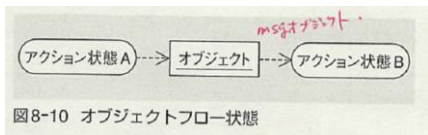 msgオブジェクト.
アクション状態A
オブジェクト
アクション状態B
図8-10 オブジェクトフロー状態